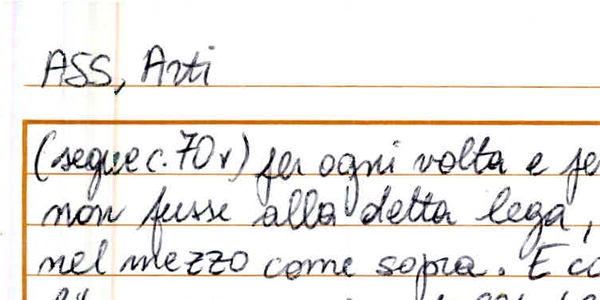 ASS, Arti
(segue c. 70v) per ogni volta e pe
non fusse alla detta lega,
nel mezzo come sopra. E co